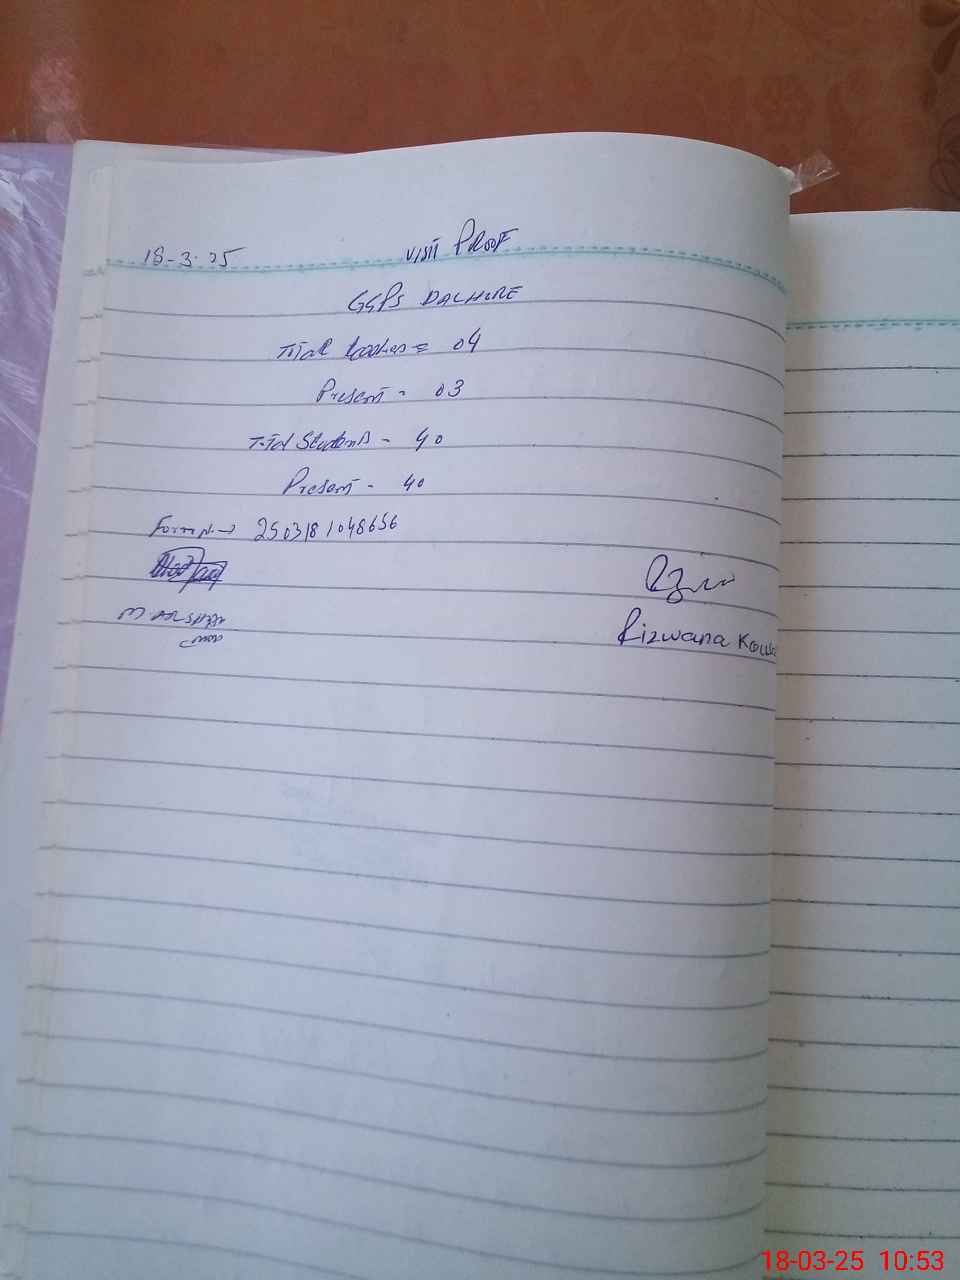 18-3-25 VISIT PROOF
GGPS DALHORE
Total teachers = 04
Present - 03
Total Students - 40
Present - 40
Form N. → 2503181048656
M. ARSHAD
Rizwana Kous
18-03-25 10:53